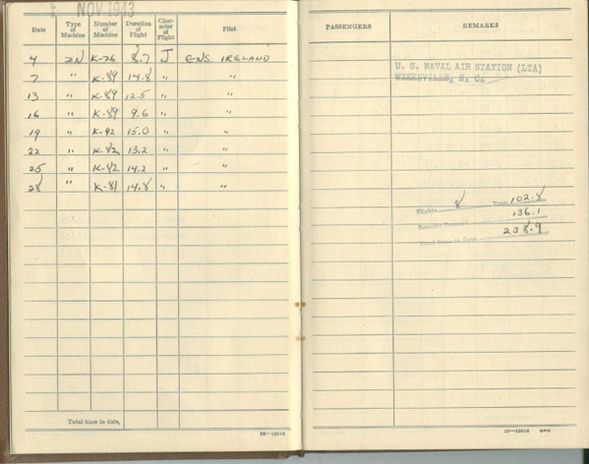 NOV 1943
Date Type of Machine Number of Machine Duration of Flight Char- acter of Flight Pilot
4 ZN K-76 8.7 J ENS. IRELAND
7 " K-89 14.8 " "
13 " K-89 12.5 " "
16 " K-89 9.6 " "
19 " K-42 15.0 " "
22 " K-82 13.2 " "
25 " K-82 14.2 " "
28 " K-81 14.8 " "
Total time to date,
16—15616
PASSENGERS REMARKS
U. S. NAVAL AIR STATION (LTA)
WEEKSVILLE, N. C.
Flights 8 Time 102.8
Brought Forward 136.1
Total Time to Date 238.9
16—15616 GPO